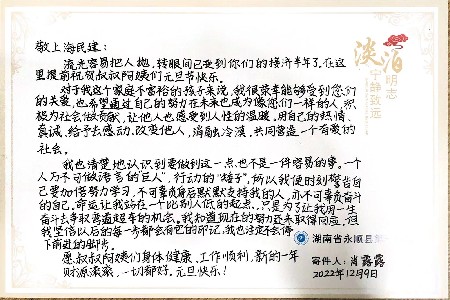 敬上海民建:
流光容易把人抛,转眼间已受到你们的接济半年了,在这
里提前祝贺叔叔阿姨们元旦节快乐。
对于我这个家庭不富裕的孩子来说,我很荣幸能够受到您们
的关爱,也希望通过自己的努力在未来也成为像您们一样的人,积
极为社会做贡献,让他人也感受到人性的温暖。用自己的热情、
真诚,给予去感动、改变他人,消融冷漠,共同营造一个有爱的
社会。
我也清楚地认识到要做到这一点也不是一件容易的事,一个
人万不可做"语言的巨人",行动的"矮子",所以我便时刻警告自
己要加倍努力学习,不可辜负身后默默支持我的人,亦不可辜负奋斗
的自己,命运让我站在一个比别人低的起点,只是为了让我用一生
奋斗去争取弯道超车的机会。我知道现在的努力还未取得回应,但
我坚信以后的每一步都会有它的印记,我也注定不会停
下前进的脚步。
愿叔叔阿姨们身体健康,工作顺利,新的一年
财源滚滚,一切都好。元旦快乐!
淡泊
明志
宁静致远
湖南省永顺县
寄件人:肖露露
2022年12月9日